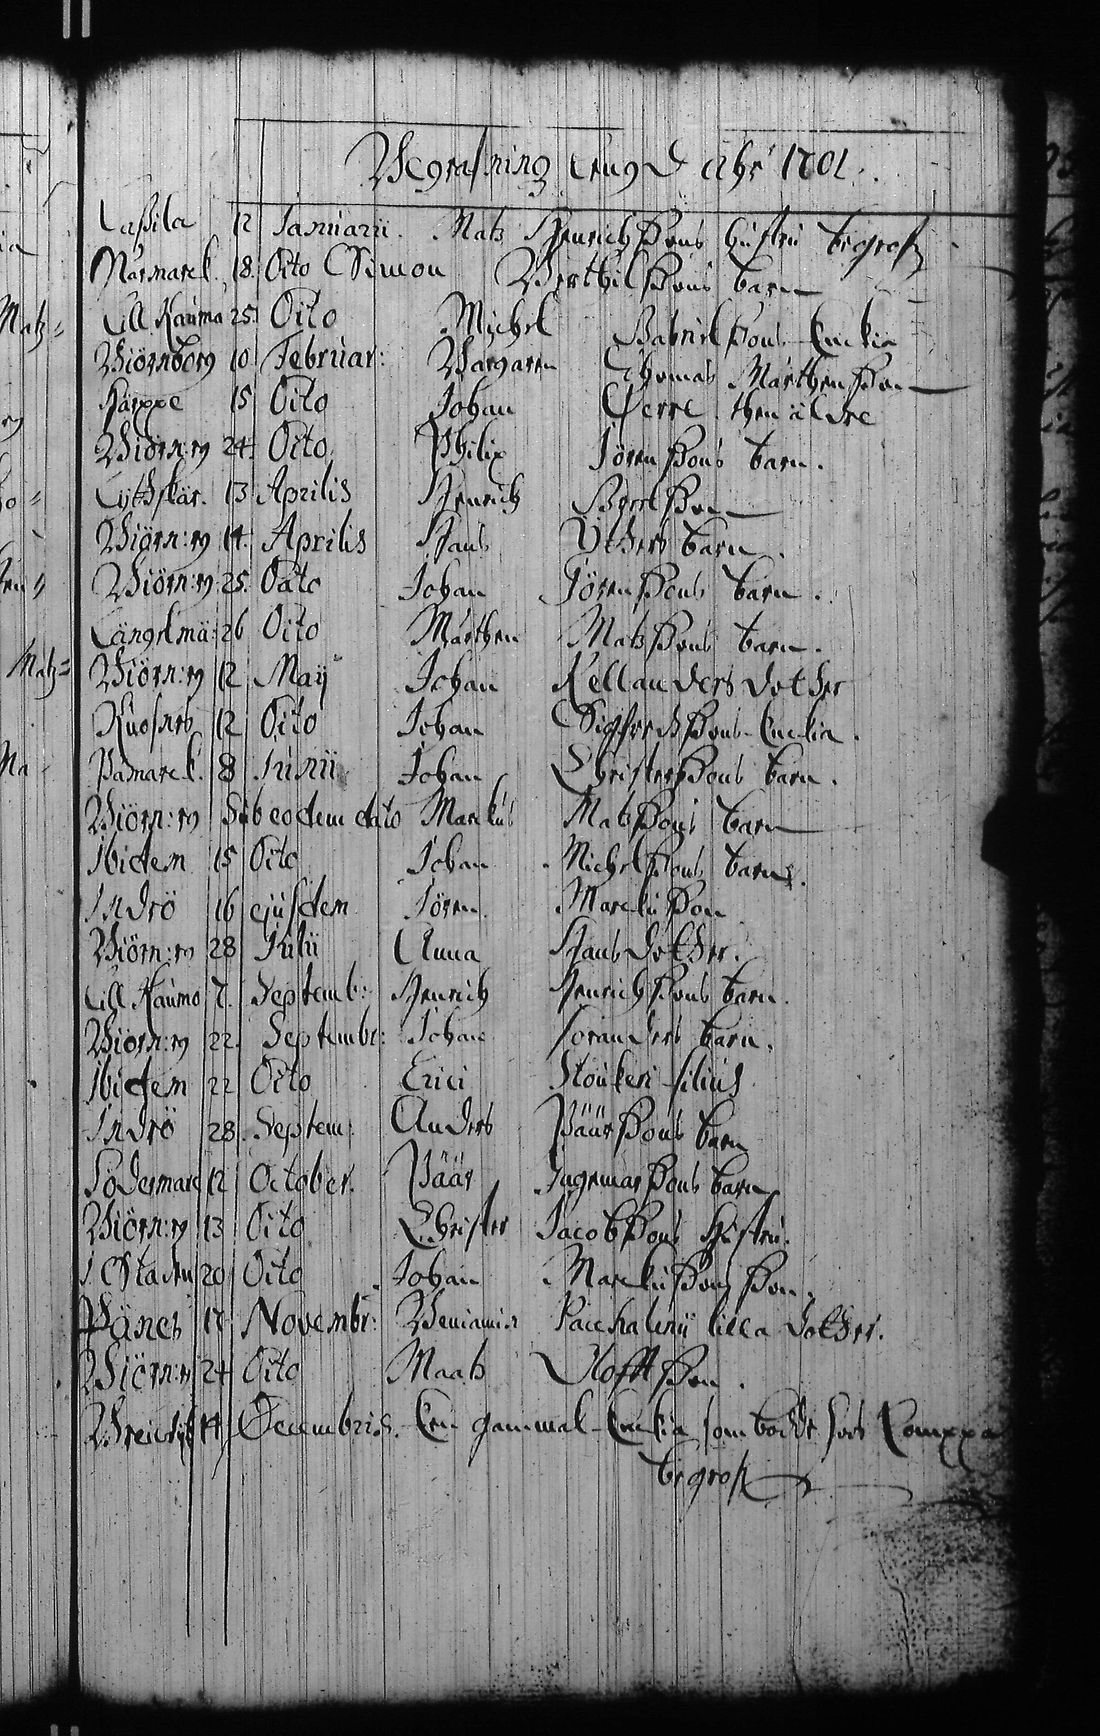 Begrafning Längd åhr 1701.
Lassila 12 Januarii. Mats Henrichßons hustru begrofz
Normarck 18. Dito Simon Berthilßons barn
Lill Raumo 25. Dito Michel Gabrielßons Enckia
Biörnborg 10 Februar: Borgaren Thomas Mårthenßon
Kärppe 15 Dito Johan Perre then äldre
Biörn:rg 24. Dito. Philip Jörenßons barn.
Lythskär. 13 Aprilis Henrich
Biörn:rg 14. Aprilis Hans barn.
Biörn:rg 25. Dato Johan Jörenßons barn.
Längelmä: 26 Dito Mårthen Matsßons barn.
Biörn:rg 12 Maij Johan Kellanders dother
12 Dito Johan Sigfredßons Enckia.
Påmarck. 8 Junii Johan Christerßons barn.
Biörn:rg Sub eodem dato Marckus Matsßons barn
Ibidem 15 Dito Johan Michelßons barn.
Inderö 16 ejusdem Jören Marckußon
Biörn:rg 28 Julii Anna Hansdother.
Lill Raumo 7. Septemb: Henrich Henrichßons barn.
Biörn:rg 22. Septembr: Johan Foranders barn.
Ibidem 22 Dito Erici filius
Inderö 28. Septem: Anders Päärßons barn
Södermarc 12 October. Päär Ingemarßons barn
Biörn:rg 13 Dito Christer Jacobßons Hustru.
I Staden 20 Dito Johan Marckußons Son.
Pånes 17 Novembr: Beniamin lilla dother.
Biörn:rg 24 Dito Maats Olofßon.
14 Decembris. En gammal Enckia som bodde hoos
begrofz